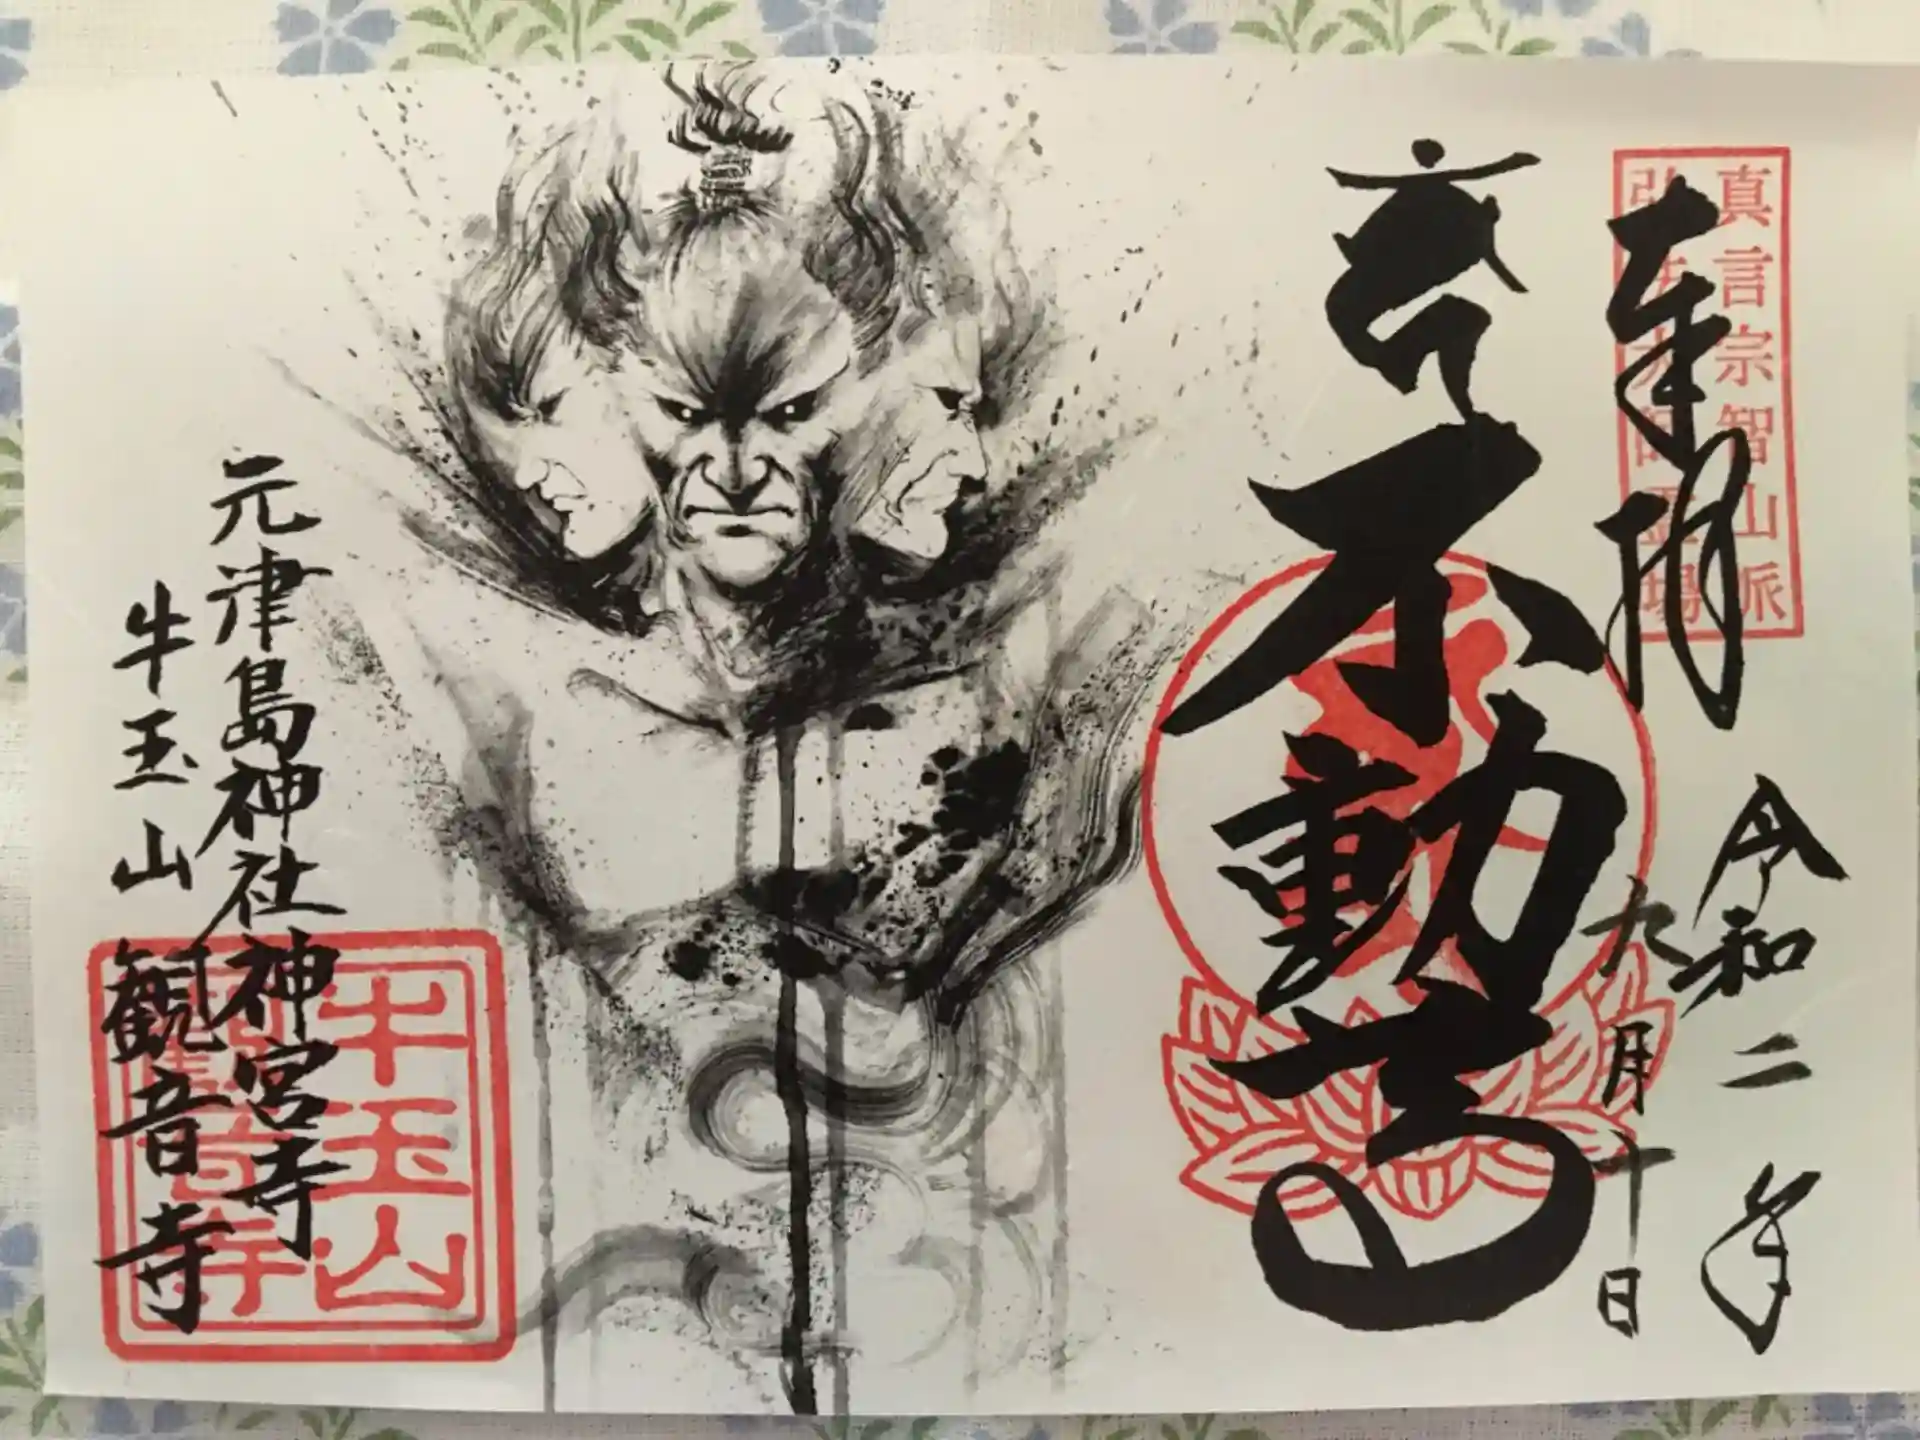 真言宗智山派
弘法大師霊場
奉拝
令和二年
九月十日
不動尊
元津島神社神宮寺
牛玉山観音寺
牛玉山
観音寺